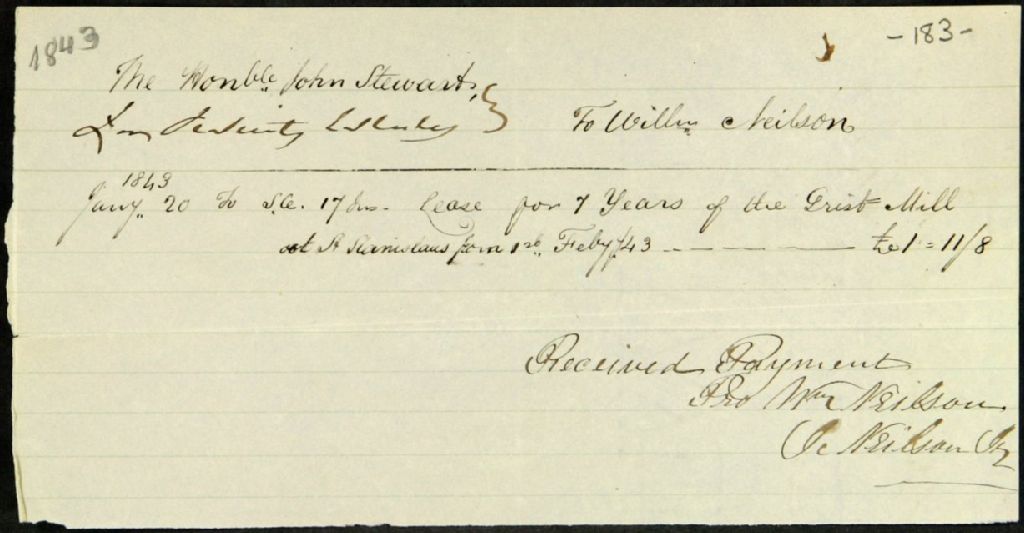 1843
- 183 -
The Honble. John Stewart
for Jesuits Estates } To Willm Neilson
1843
Jany. 20 To 17 Lease for 7 Years of the Grist Mill
at St Stanislaus from 1st. Feby /43 — £1 = 11/8
Received Payment
Pro Wm Neilson
Neilson Jr